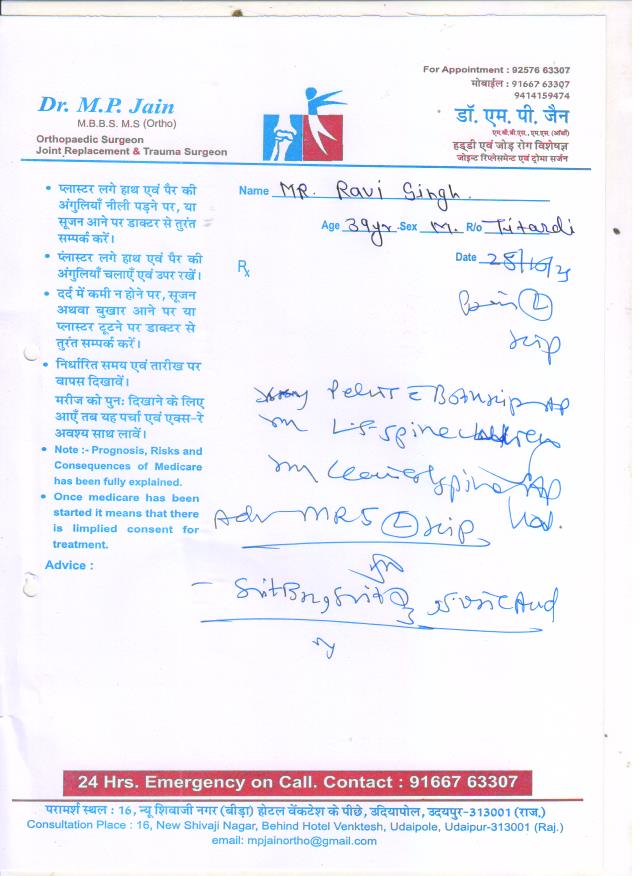 For Appointment : 92576 63307
मोबाईल : 91667 63307
9414159474
Dr. M.P. Jain
M.B.B.S. M.S (Ortho)
Orthopaedic Surgeon
Joint Replacement & Trauma Surgeon
डॉ. एम. पी. जैन
एम.बी.बी.एस., एम.एस. (ऑर्थो)
हड्डी एवं जोड़ रोग विशेषज्ञ
जोइन्ट रिप्लेसमेन्ट एवं ट्रोमा सर्जन
• प्लास्टर लगे हाथ एवं पैर की
अंगुलियाँ नीली पड़ने पर, या
सूजन आने पर डाक्टर से तुरंत
सम्पर्क करें।
• प्लास्टर लगे हाथ एवं पैर की
अंगुलियां चलाएँ एवं उपर रखें।
• दर्द में कमी न होने पर, सूजन
अथवा बुखार आने पर या
प्लास्टर टूटने पर डाक्टर से
तुरंत सम्पर्क करें।
• निर्धारित समय एवं तारीख पर
वापस दिखावें।
मरीज को पुनः दिखाने के लिए
आएँ तब यह पर्चा एवं एक्स-रे
अवश्य साथ लावें।
• Note :- Prognosis, Risks and
Consequences of Medicare
has been fully explained.
• Once medicare has been
started it means that there
is limplied consent for
treatment.
Advice :
Name MR. Ravi Singh.
Age 39yr Sex M. R/o Titardi
Rx
Date 28/10/25
Pain (L)
Hip
Xray Pelvis c Both hip AP
L-S-spine
Spine AP
Adv MRI (L) Hip
24 Hrs. Emergency on Call. Contact : 91667 63307
परामर्श स्थल : 16, न्यू शिवाजी नगर (बीड़ा) होटल वेंकटेश के पीछे, उदियापोल, उदयपुर-313001 (राज.)
Consultation Place : 16, New Shivaji Nagar, Behind Hotel Venktesh, Udaipole, Udaipur-313001 (Raj.)
email: mpjainortho@gmail.com